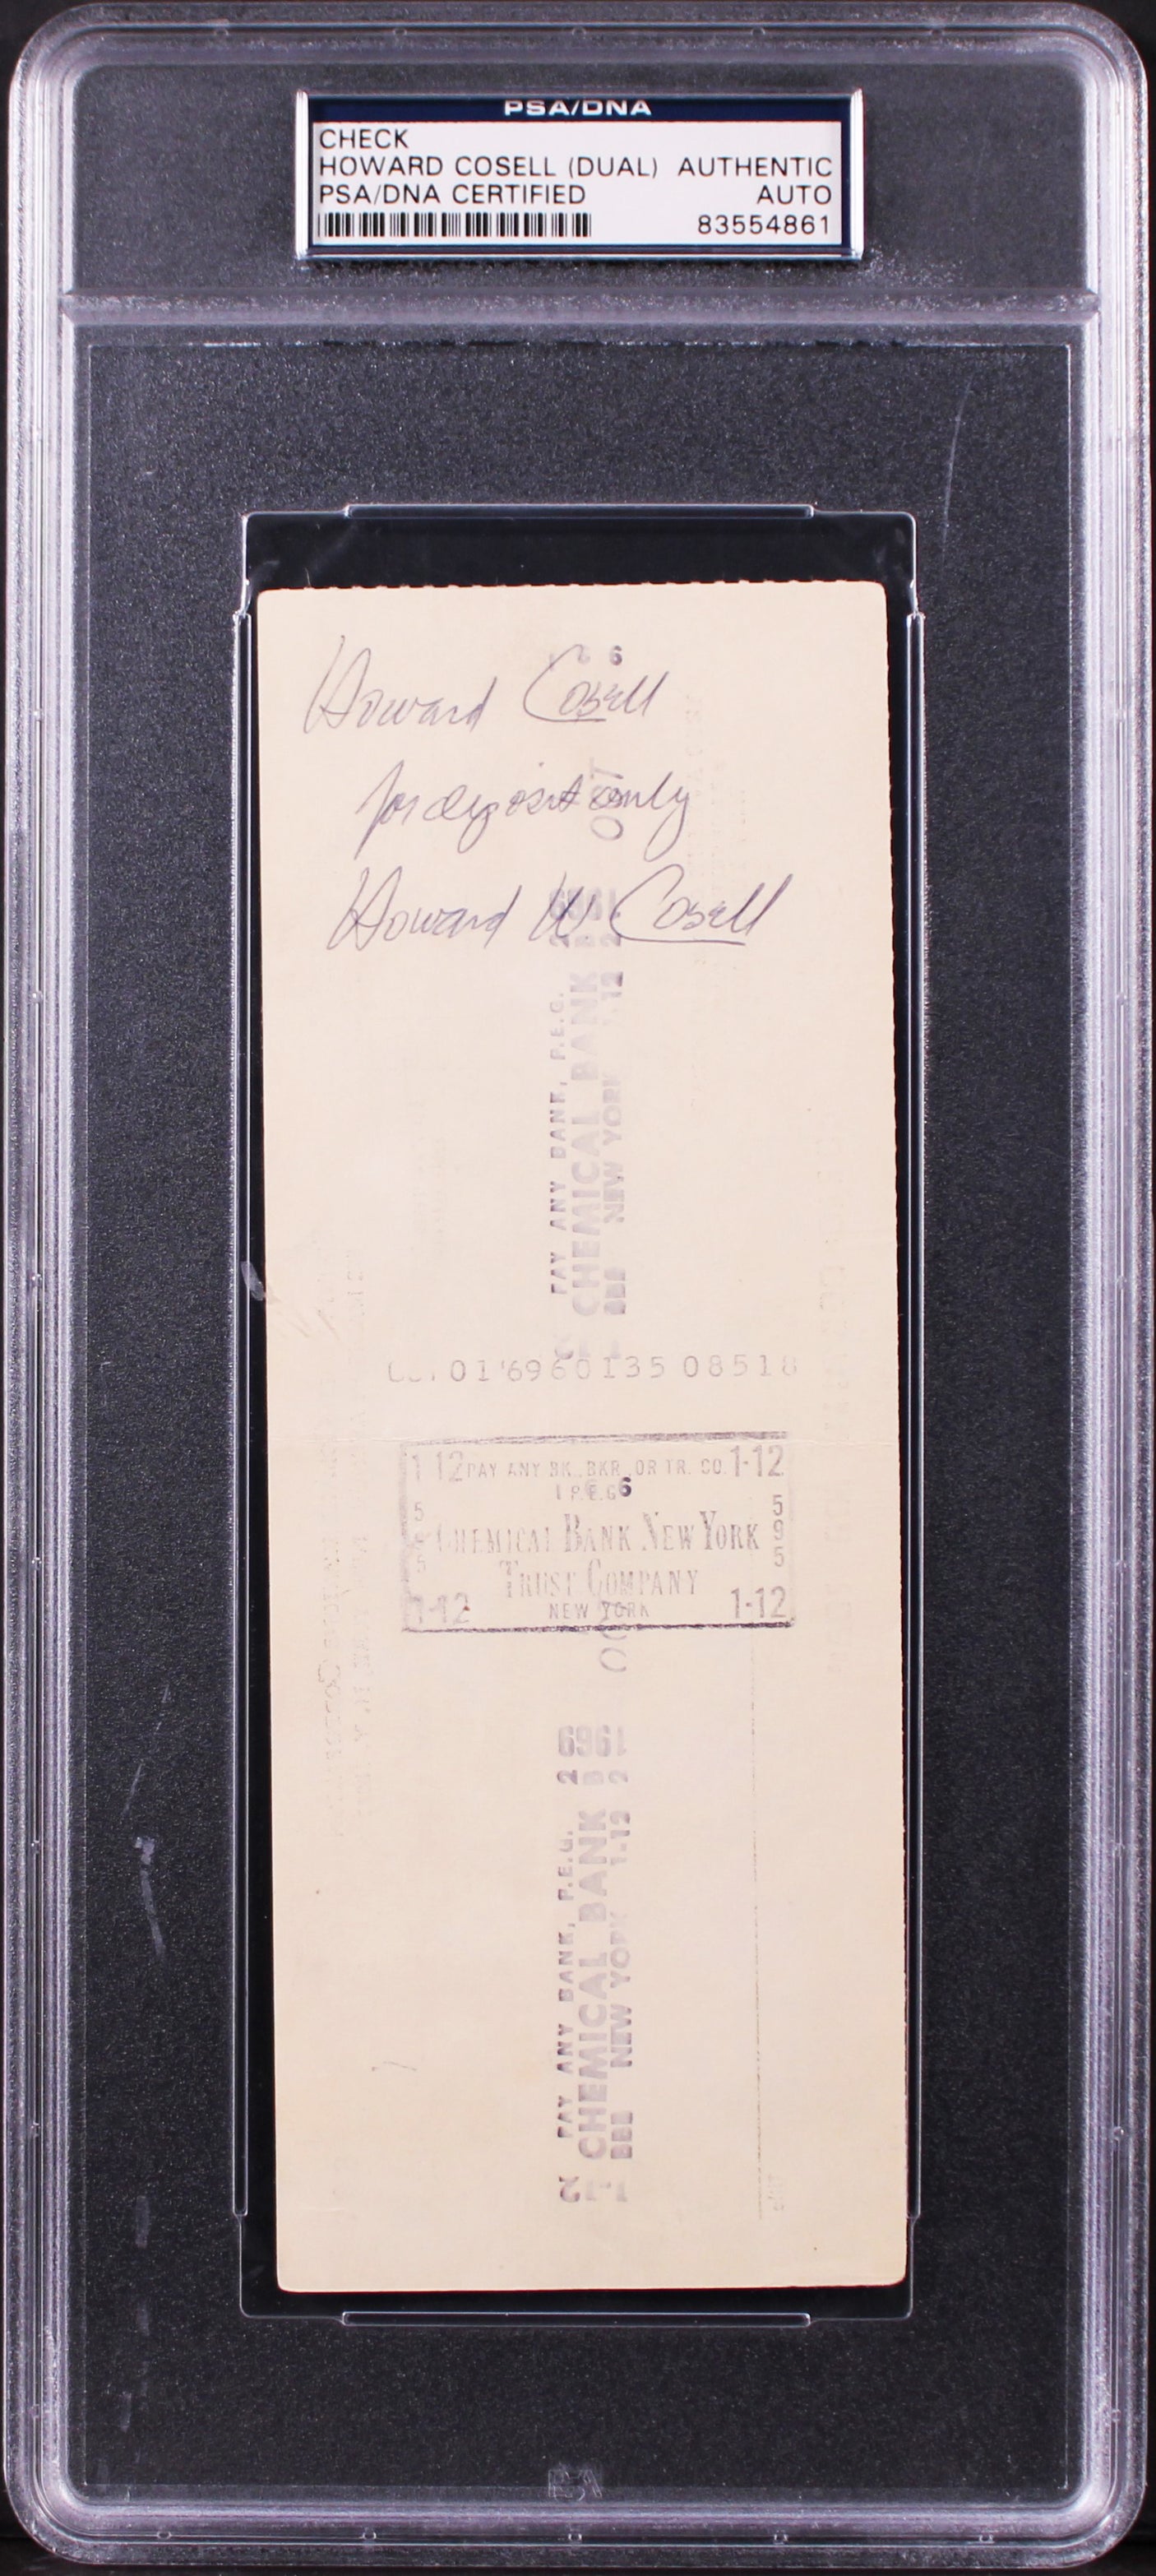 PSA/DNA
CHECK
HOWARD COSELL (DUAL) AUTHENTIC
PSA/DNA CERTIFIED AUTO
83554861
Howard Cosell
for deposit only
Howard W Cosell
PAY ANY BANK, P.E.G.
CHEMICAL BANK
NEW YORK 1-12
01'6960135 08518
1-12 PAY ANY BK., BKR. OR TR. CO. 1-12
P.E.G.
595 CHEMICAL BANK NEW YORK 595
TRUST COMPANY
1-12 NEW YORK 1-12
PAY ANY BANK, P.E.G. 2 1969
CHEMICAL BANK
NEW YORK 1-12 2